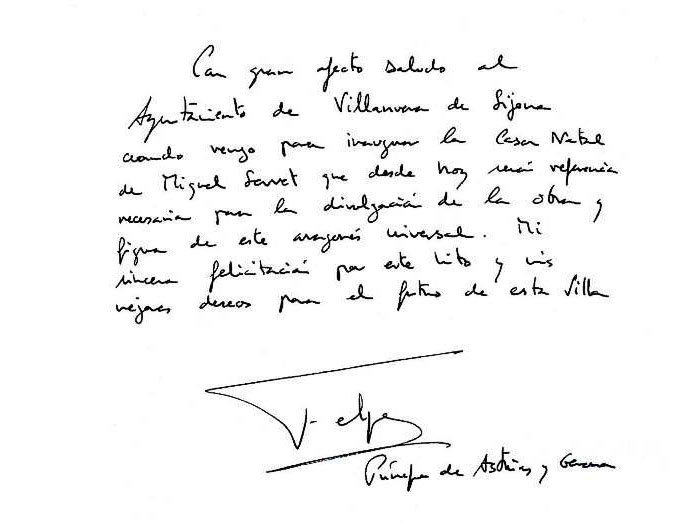 Con gran afecto saludo al
Ayuntamiento de Villanueva de Sijena
cuando vengo para inaugurar la Casa Natal
de Miguel Servet que desde hoy será referencia
necesaria para la divulgación de la obra y
figura de este aragonés universal. Mi
sincera felicitación por este hito y mis
mejores deseos para el futuro de esta Villa
Felipe
Príncipe de Asturias y Gerona